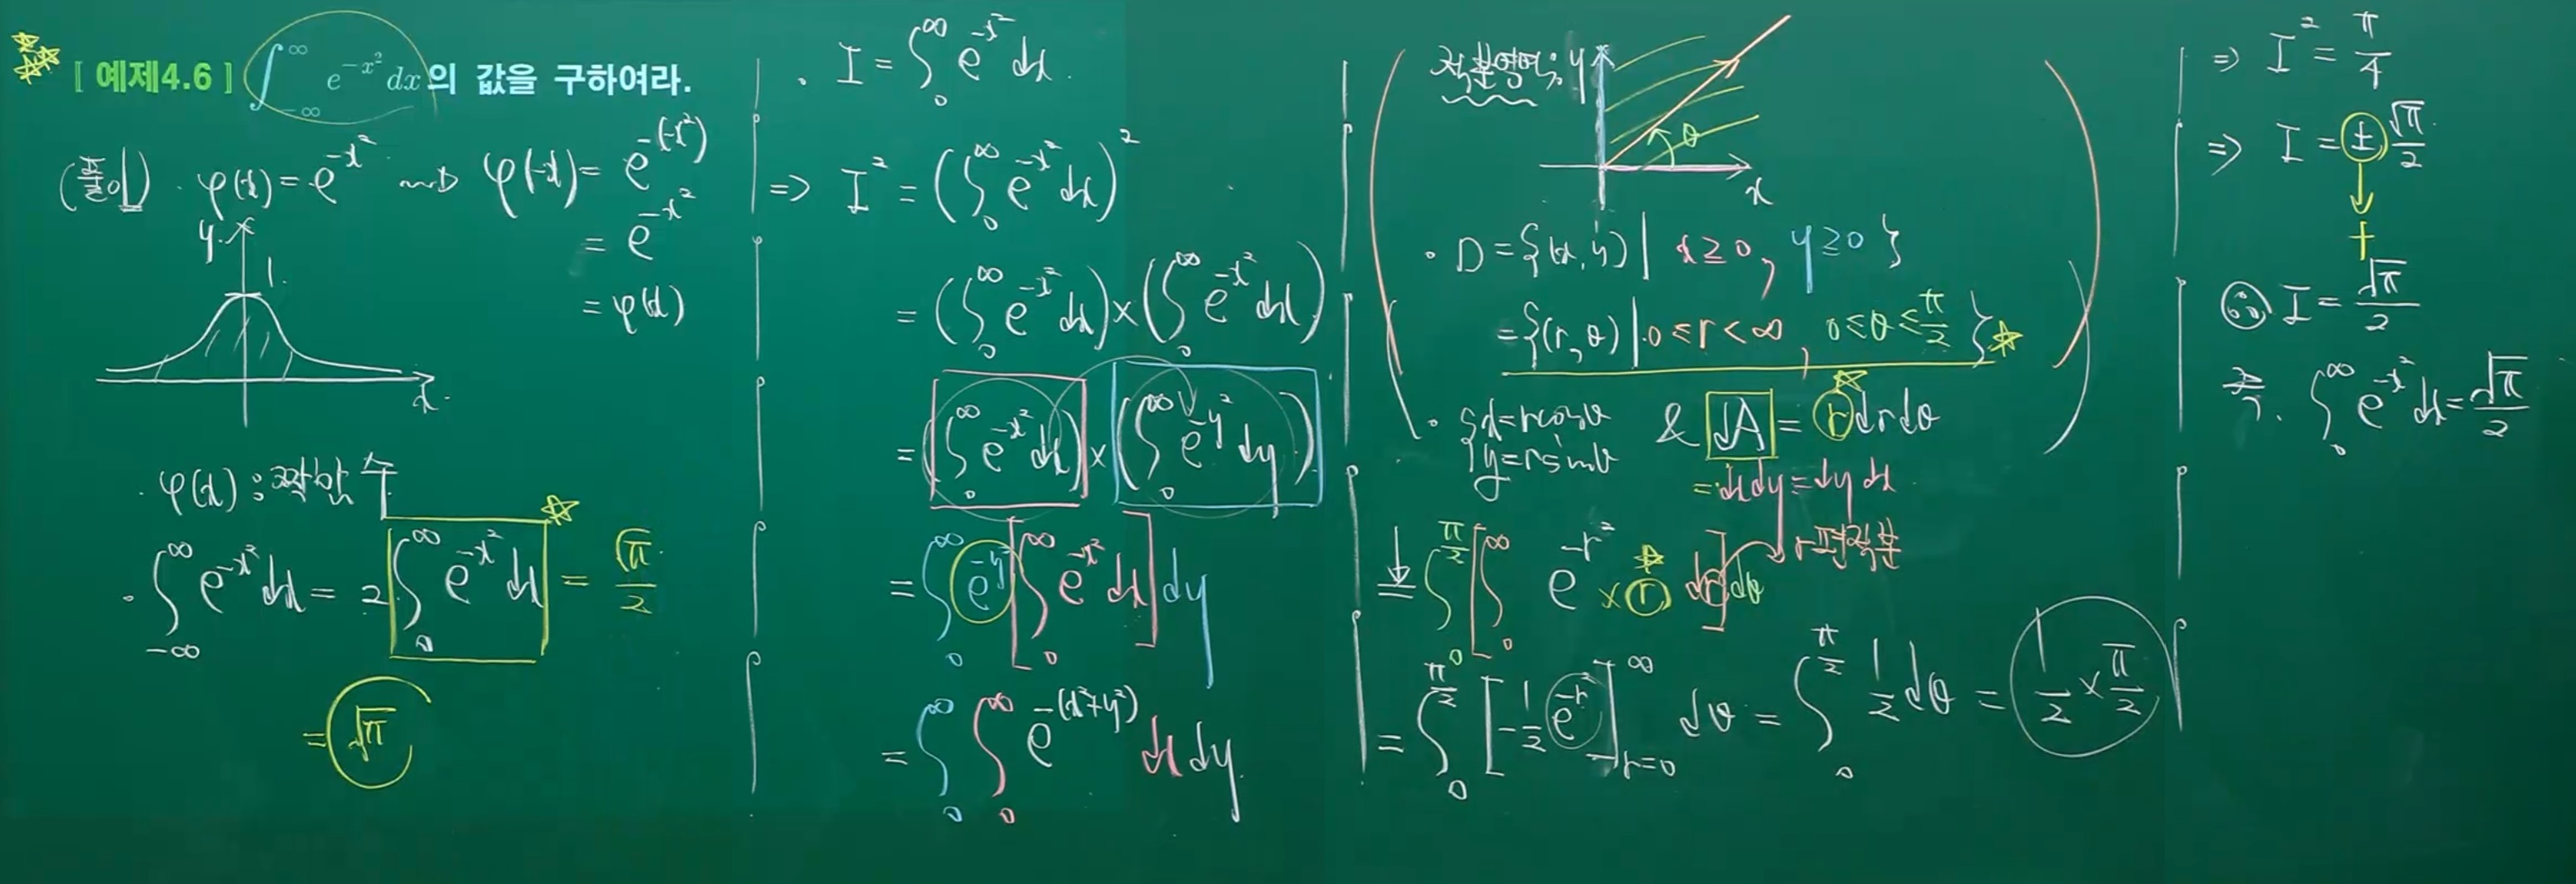 [ 예제4.6 ] ∫_{-∞}^{∞} e^{-x²} dx 의 값을 구하여라.
(풀이) · φ(x) = e^{-x²} ⇝ φ(-x) = e^{-(-x)²}
= e^{-x²}
= φ(x)
y
1
x
· φ(x) : 짝함수
· ∫_{-∞}^{∞} e^{-x²} dx = 2 ∫_0^∞ e^{-x²} dx = √π/2
= √π
· I = ∫_0^∞ e^{-x²} dx
⇒ I² = (∫_0^∞ e^{-x²} dx)²
= (∫_0^∞ e^{-x²} dx) × (∫_0^∞ e^{-x²} dx)
= (∫_0^∞ e^{-x²} dx) × (∫_0^∞ e^{-y²} dy)
= ∫_0^∞ e^{-y²} [∫_0^∞ e^{-x²} dx] dy
= ∫_0^∞ ∫_0^∞ e^{-(x²+y²)} dx dy
적분영역; y
θ
x
· D = {(x, y) | x ≥ 0, y ≥ 0}
= {(r, θ) | 0 ≤ r < ∞, 0 ≤ θ ≤ π/2}
· { x = r cos θ
y = r sin θ
& dA = r dr dθ
= dx dy = dy dx
= ∫_0^{π/2} [∫_0^∞ e^{-r²} × r dr] dθ
= ∫_0^{π/2} [-1/2 e^{-r²}]_{r=0}^∞ dθ = ∫_0^{π/2} 1/2 dθ = 1/2 × π/2
⇒ I² = π/4
⇒ I = ± √π/2
+
∴ I = √π/2
즉. ∫_0^∞ e^{-x²} dx = √π/2